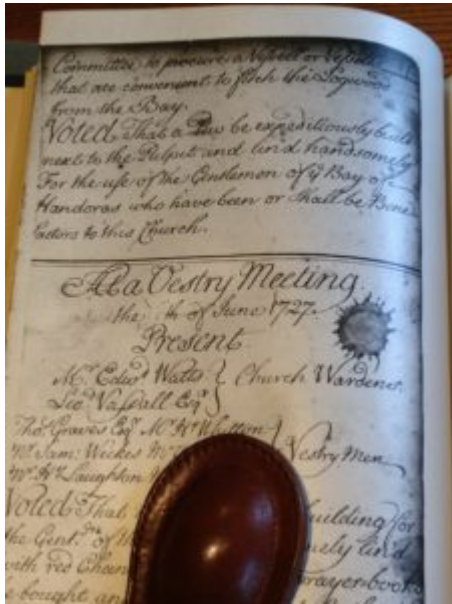 Committee to procure a Vessell or Vessells
that are convenient to fetch the Logwood
from the Bay.
Voted That a Pew be expeditiously built
next to the Pulpit and lin'd handsomely
For the use of the Gentlemen of yͤ Bay of
Handoras who have been or shall be Bene
factors to this Church.
At a Vestry Meeting
the th of June 1727.
Present
Mͬ. Edwᵈ Watts } Church Wardens.
Leoᵈ Vassall Esqͬ }
Thoˢ. Graves Esqͬ Mͬ Wᵐ
Mͬ. Sam: Weekes Mͬ } Vestry Men
Mͬ. Wᵐ Laughton
Voted That building for
the Gentᵐ of lin'd
with red prayer-books
be bought